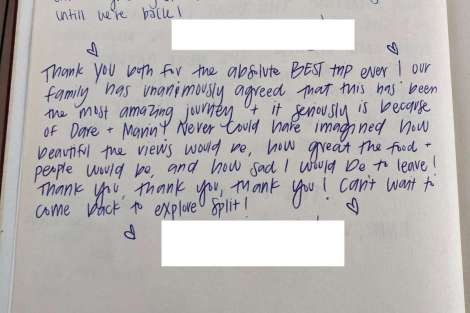 untill we're back!
Thank you both for the absolute BEST trip ever! our
family has unanimously agreed that this has been
the most amazing journey + it seriously is because
of Dare + Marin! Never could have imagined how
beautiful the views would be, how great the food +
people would be, and how sad I would be to leave!
Thank you, thank you, thank you! Can't wait to
come back to explore Split!